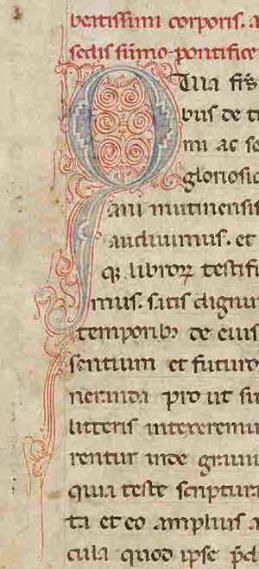 beatissimi corporis. a
sedis sūmo pontifice
Quia fr̄s
bus de t
mi ac se
gloriosio
ani mutinensis
audiuimus. et
q; libroꝝ testifi
mus. satis dignum
temporibꝫ de eius
sentium et futuro
neranda pro ut su
litteris intexeremu
rentur inde grauiu
quia teste scriptura
ta et eo amplius a
cula quod ipse p̄d